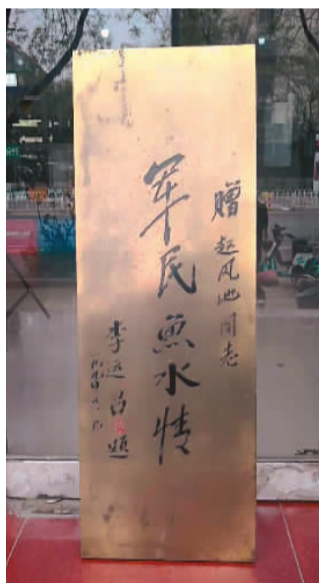 赠赵风池同志
军民鱼水情
李运昌题